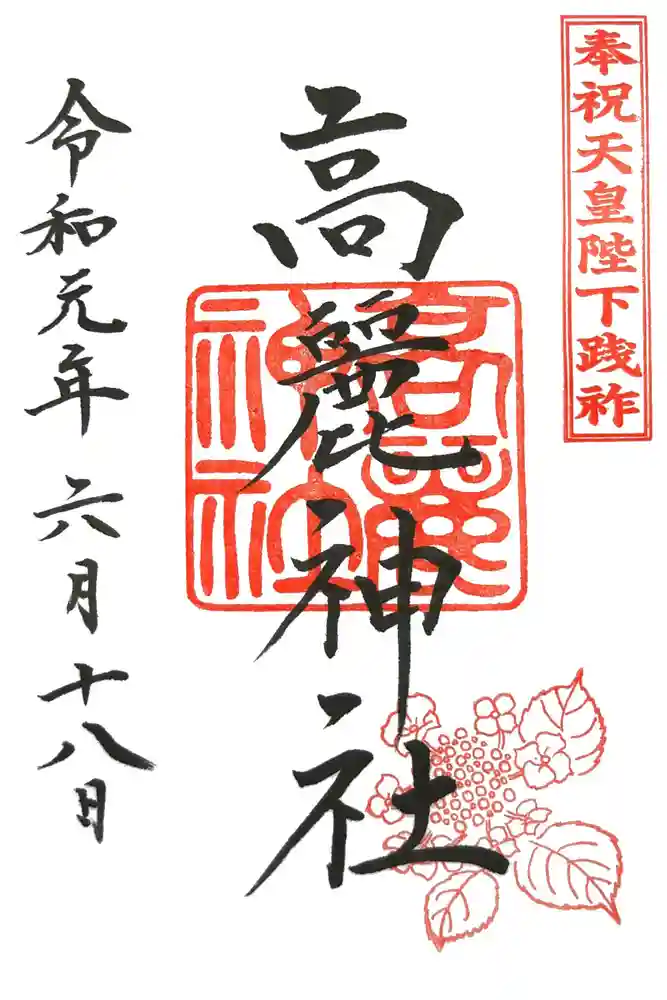 奉祝天皇陛下践祚
高麗神社
高麗神社
令和元年六月十八日